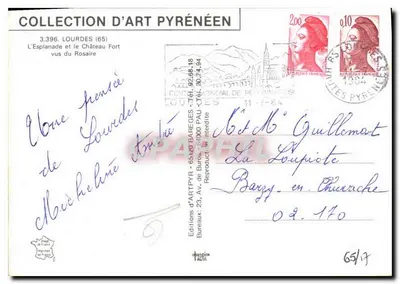 COLLECTION D'ART PYRÉNÉEN
3.396. LOURDES (65)
L'Esplanade et le Château Fort
vus du Rosaire
2,00
0,10
LOURDES
11-7-84
HAUTES PYRENEES
Une pensée
de Lourdes
Micheline André
Editions d'ARTPYR - 65120 BAREGES - Tél. 92.68.18
Bureaux: 23, Av. de Buros, 64000 PAU - Tél. 30.74.94
Reproduction interdite
Mr et Mme Quillemart
La Loupiote
Barzy-en-Thiérache
02.170
65/17